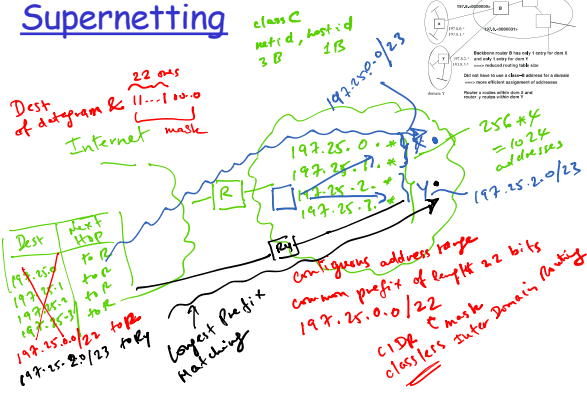 Supernetting
class C
netid, hostid
3B 1B
197.25.0.0/23
Backbone router B has only 1 entry for dom X
and only 1 entry for dom Y
==> reduced routing table size
Did not have to use a class-B address for a domain
==> more efficient assignment of addresses
Router x routes within dom Z and
router y routes within dom Y
B
Y
domain Y
22 ones
Dest
of datagram & 11...1 00..0
mask
Internet
R
197.25.0.*
197.25.1.*
197.25.2.*
X
Y
256 * 4
= 1024
addresses
197.25.2.0/23
Ry
Dest
Next
Hop
197.25.0
197.25.1
197.25.2
197.25.3
to R
to R
to R
to R
197.25.0.0/22 to R
197.25.2.0/23 to Ry
Longest Prefix
Matching
contiguous address range
common prefix of length 22 bits
197.25.0.0/22
mask
CIDR
classless Inter Domain Routing